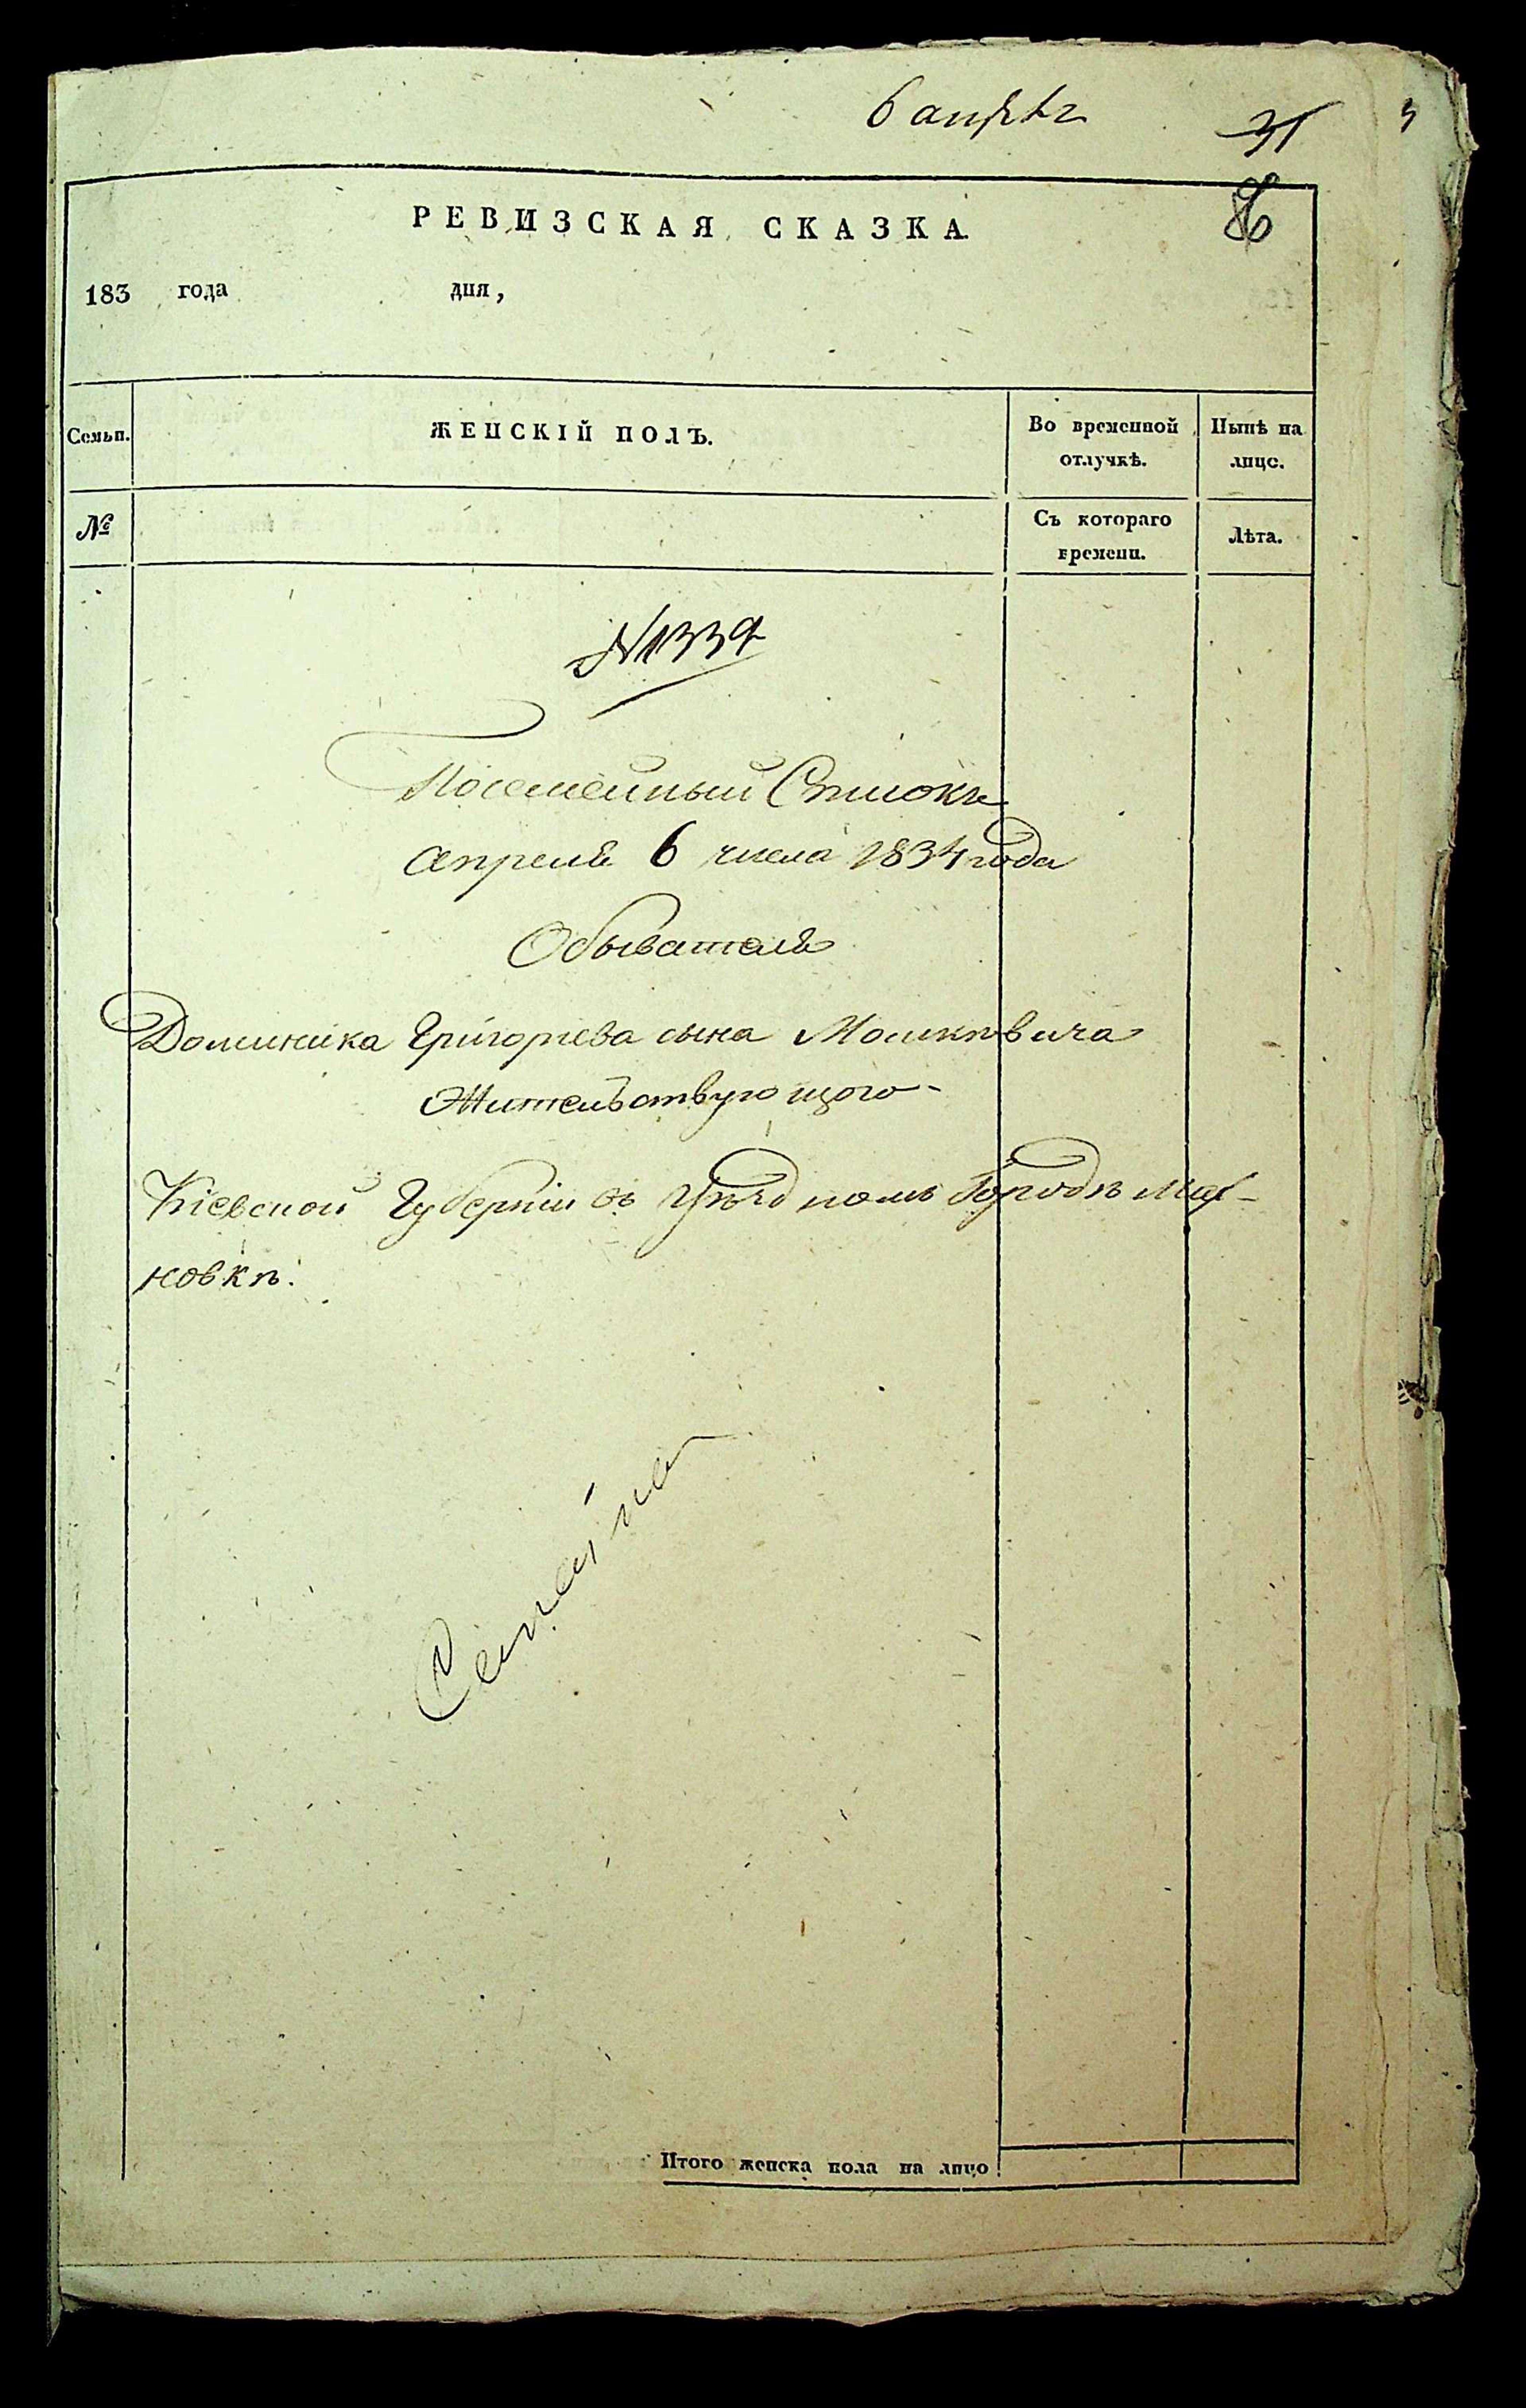 6 апрѣл
31
РЕВИЗСКАЯ СКАЗКА
183 года дня,
Семьи. ЖЕНСКІЙ ПОЛЪ. Во временной отлучкѣ. Нынѣ на лице.
№ Съ котораго времени. Лѣта.
№1339
Посемейный Списокъ
апреля 6 числа 1834 года
Обывателя
Доминика Григорьева сына Мошковича
Жительствующого
Кіевской Губерніи въ Уѣздномъ Городѣ Мах-
новкѣ.
Итого женска пола на лицо